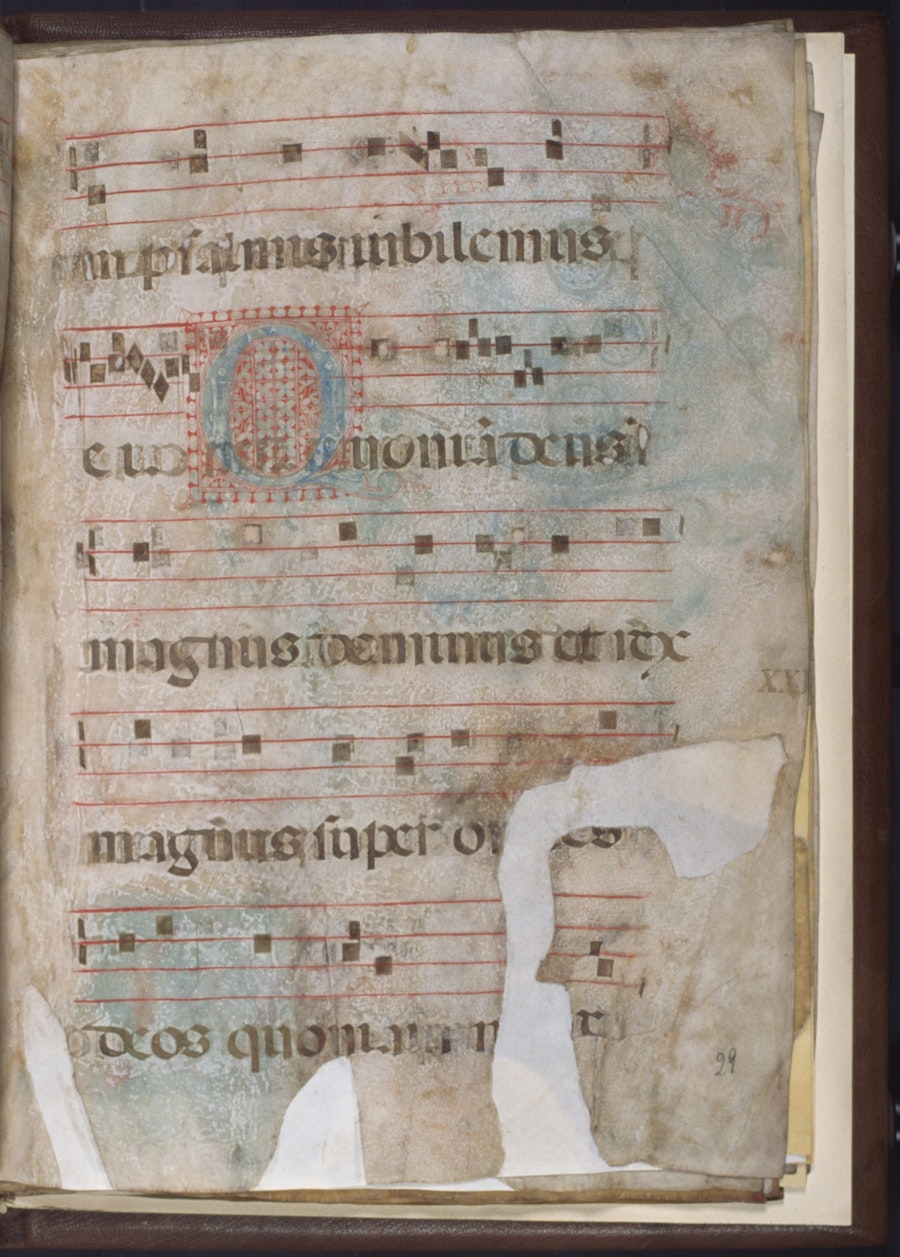 in psalmis iubilemus
ei. Quoniam deus
magnus dominus et rex
magnus super o es
XX
deos quoniam n
29